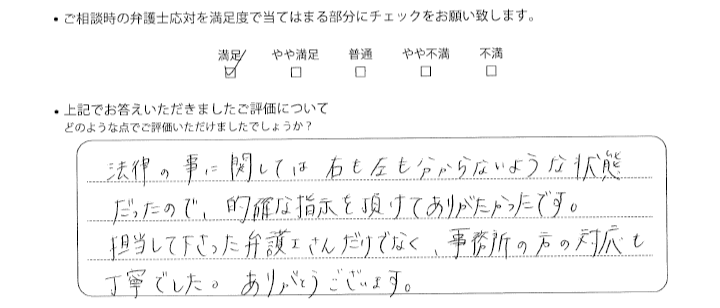 • ご相談時の弁護士応対を満足度で当てはまる部分にチェックをお願い致します。
満足 やや満足 普通 やや不満 不満
☑ □ □ □ □
• 上記でお答えいただきましたご評価について
どのような点でご評価いただけましたでしょうか？
法律の事に関しては右も左も分からないような状態
だったので、的確な指示を頂けてありがたかったです。
担当して下さった弁護士さんだけでなく、事務所の方の対応も
丁寧でした。ありがとうございます。